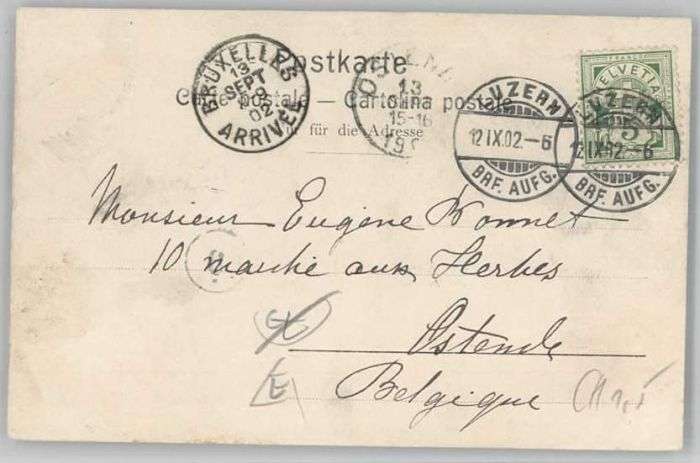 Postkarte
Carte postale — Cartolina postale
für die Adresse
BRUXELLES
13
SEPT
02
ARRIVÉE
13
15-16
LUZERN
12 IX.02.-6
BRF. AUFG.
HELVETIA
5
LUZERN
12 IX.02.-6
BRF. AUFG.
Monsieur Eugène Wonnet
10 marché aux Herbes
Ostende
Belgique